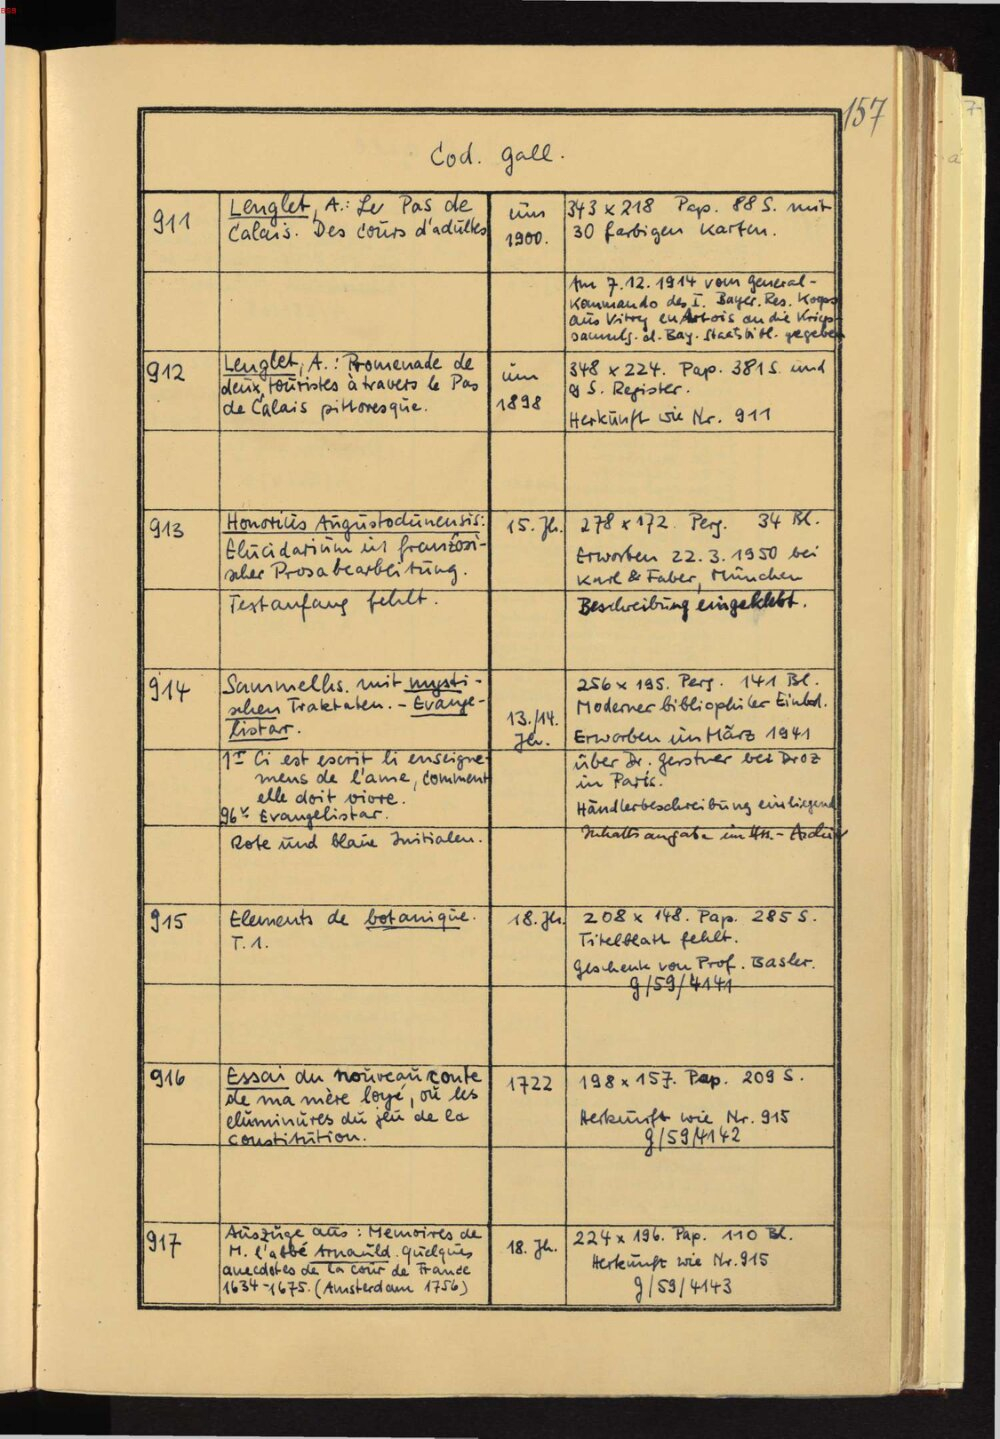 BSB
157
Cod. gall.
911
Lenglet, A.: Le Pas de
Calais. Des Cours d'adultes
um
1900.
343 x 218 Pap. 88 S. mit
30 farbigen Karten.
Am 7.12.1914 vom General-
kommando des I. Bayer. Res. Korps
aus Vitry en Artois an die Kriegs-
sammlg. d. Bay. Staatsbibl. gegeben
912
Lenglet, A.: Promenade de
deux touristes à travers le Pas
de Calais pittoresque.
um
1898
348 x 224. Pap. 381 S. und
9 S. Register.
Herkunft wie Nr. 911
913
Honorius Augustodunensis:
Elucidarium in französi-
scher Prosabearbeitung.
Textanfang fehlt.
15. Jh.
278 x 172. Perg. 34 Bl.
Erworben 22.3.1950 bei
Karl & Faber, München
Beschreibung eingeklebt.
914
Sammelhs. mit mysti-
schen Traktaten. - Evange-
listar.
1r Ci est escrit li enseigne-
mens de l'ame, comment
elle doit vivre.
96v Evangelistar.
Rote und blaue Initialen.
13./14.
Jh.
256 x 195. Perg. 141 Bl.
Moderner bibliophiler Einbd.
Erworben im März 1941
über Dr. Gerstner bei Droz
in Paris.
Händlerbeschreibung einliegend
Inhaltsangabe im Hss.-Archiv
915
Elements de botanique.
T. 1.
18. Jh.
208 x 148. Pap. 285 S.
Titelblatt fehlt.
Geschenk von Prof. Basler.
g/59/4141
916
Essai du nouveau conte
de ma mère loye, où les
eluminures du jeu de la
constitution.
1722
198 x 157. Pap. 209 S.
Herkunft wie Nr. 915
g/59/4142
917
Auszüge aus: Memoires de
M. l'abbé Arnauld. Quelques
anecdotes de la cour de France
1634-1675. (Amsterdam 1756)
18. Jh.
224 x 196. Pap. 110 Bl.
Herkunft wie Nr. 915
g/59/4143